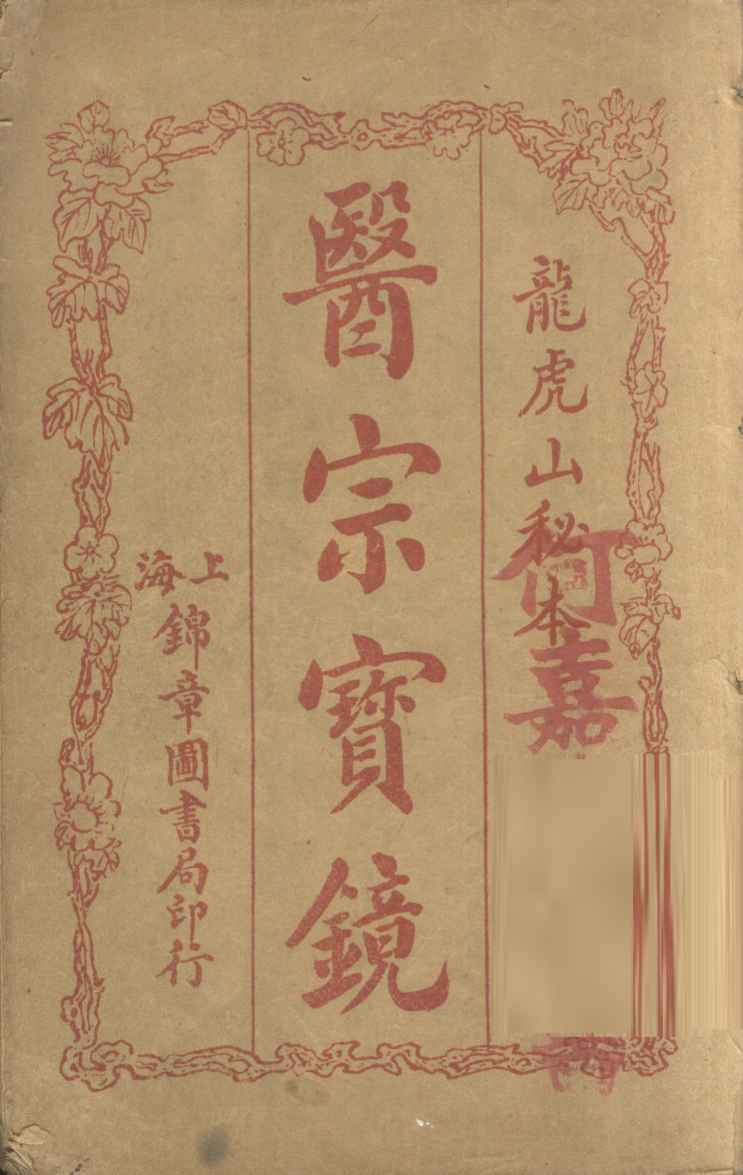 龍虎山秘本
醫宗寳鏡
上海錦章圖書局印行
嘉